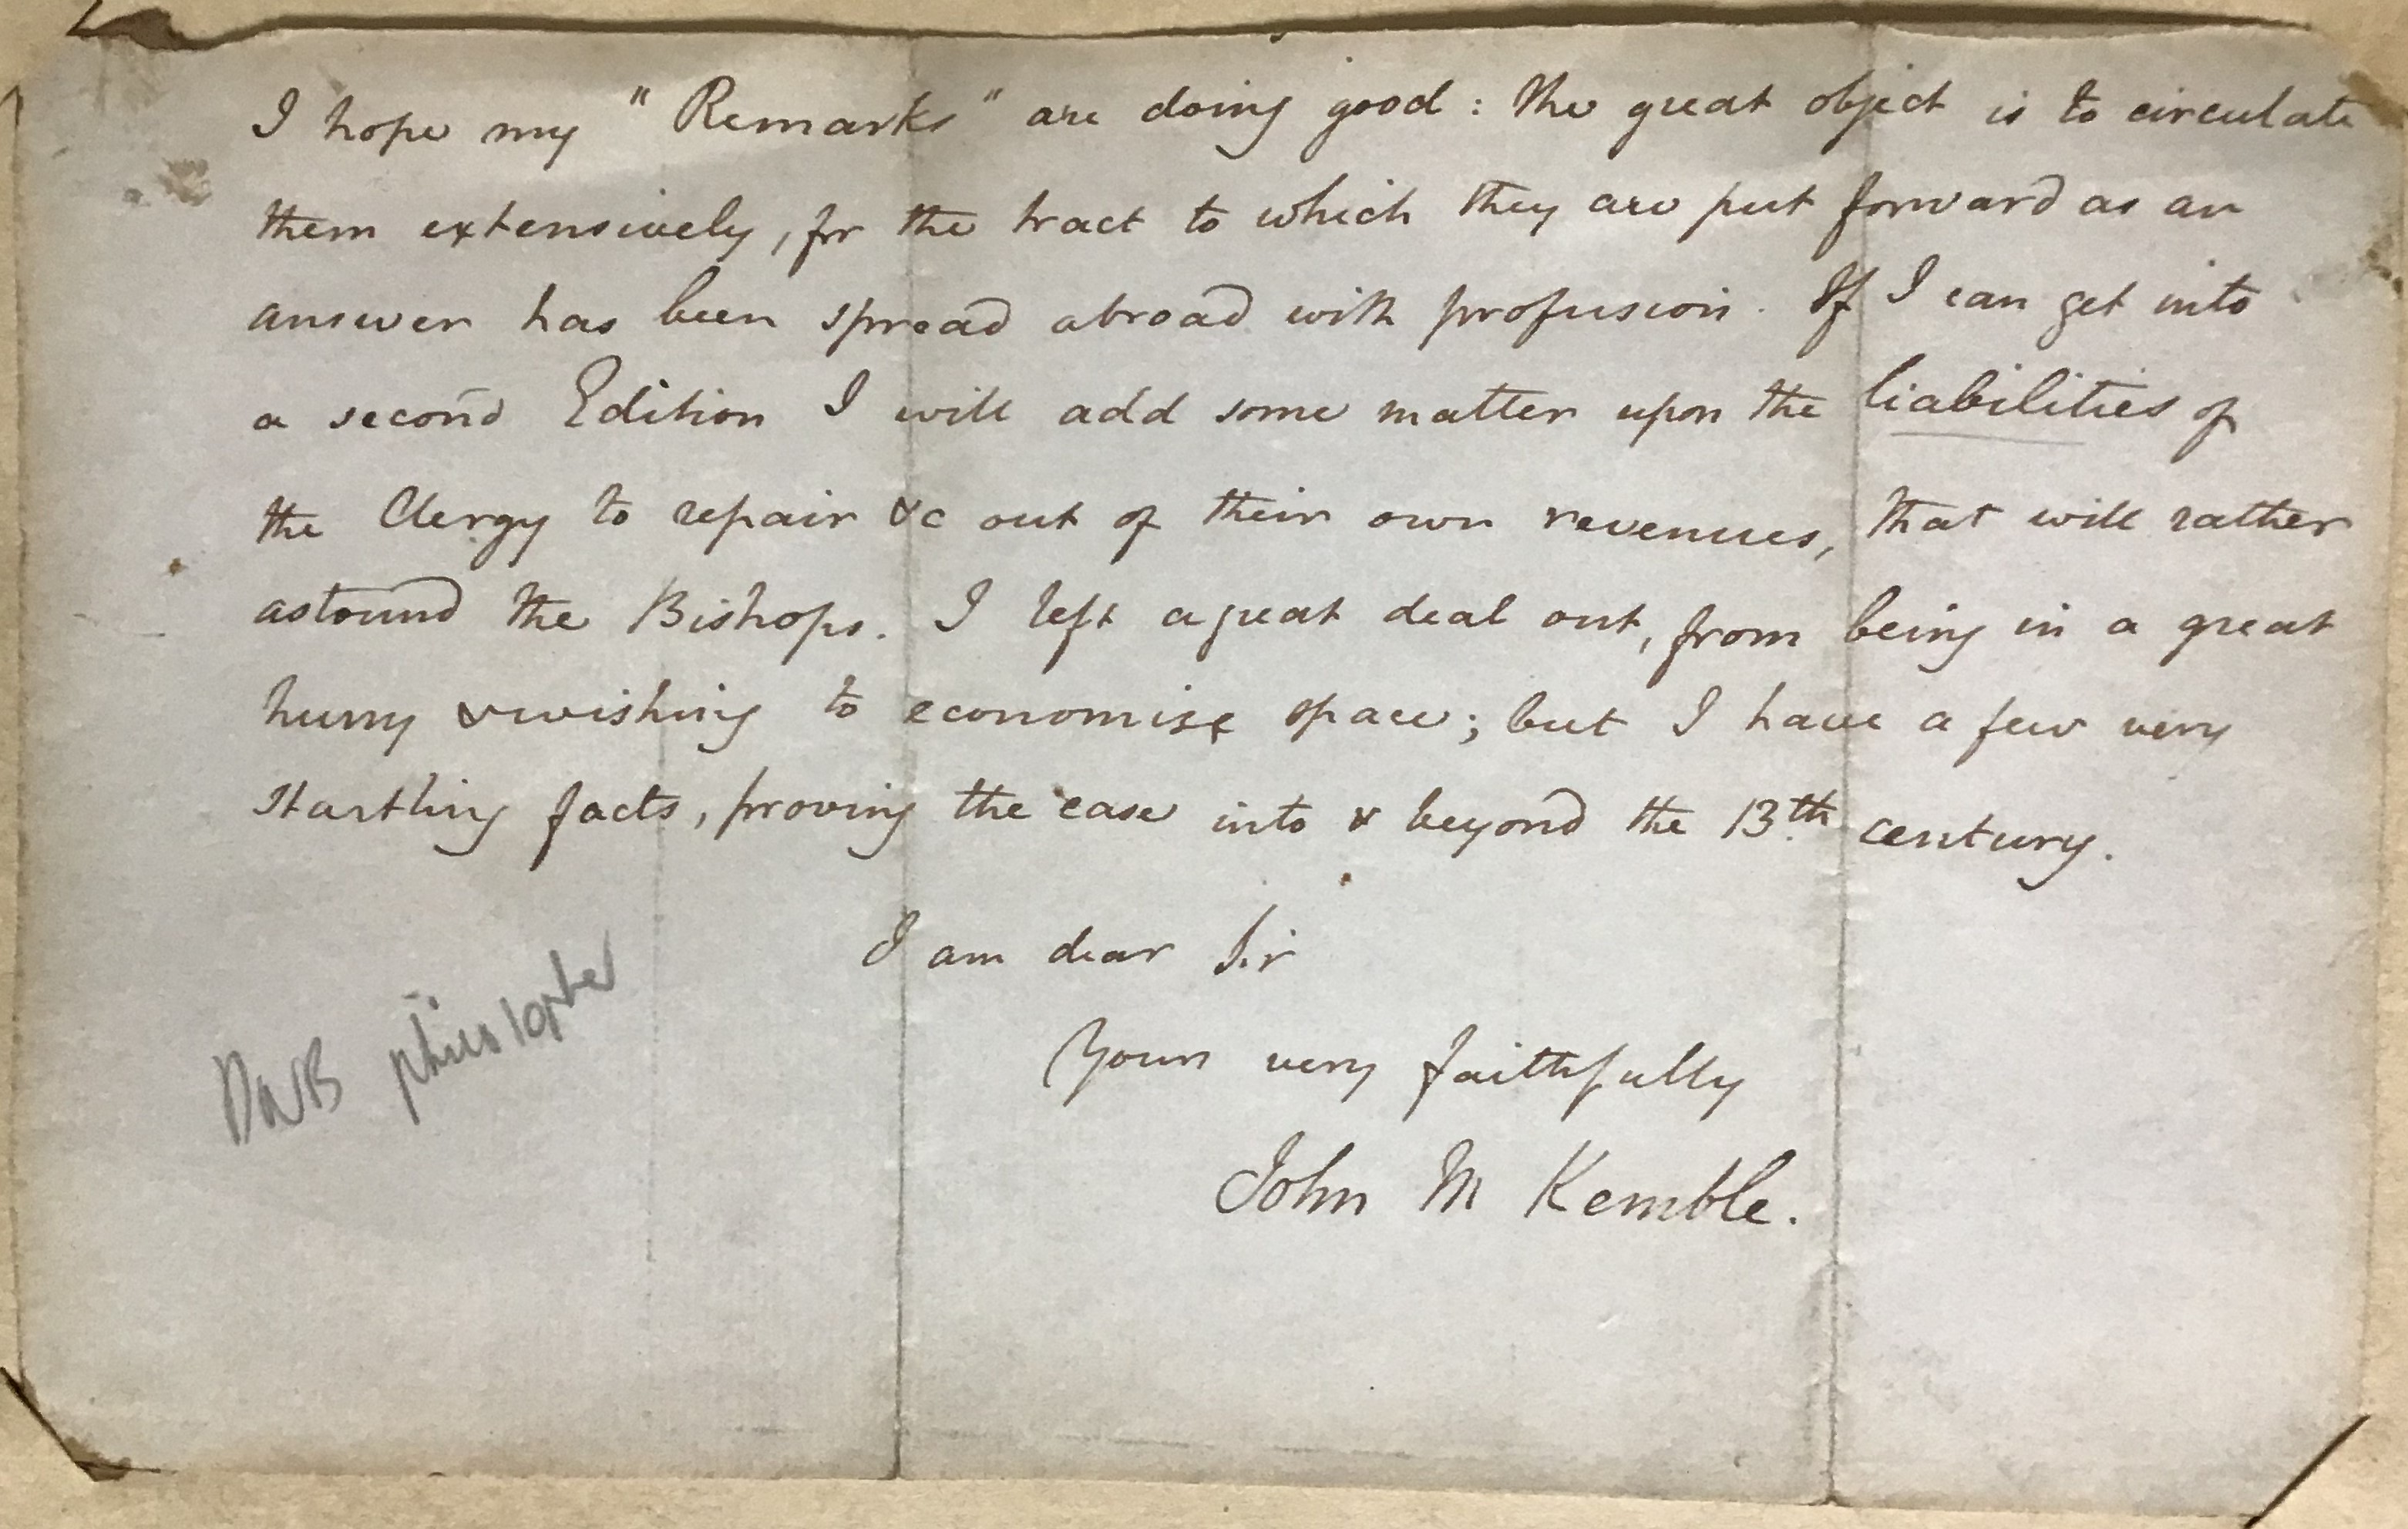 I hope my "Remarks" are doing good: the great object is to circulate
them extensively, for the tract to which they are put forward as an
answer has been spread abroad with profusion. If I can get into
a second Edition I will add some matter upon the liabilities of
the Clergy to repair &c out of their own revenues, that will rather
astound the Bishops. I left a great deal out, from being in a great
hurry & wishing to economise space; but I have a few very
startling facts, proving the case into & beyond the 13th century.
I am dear Sir
Yours very faithfully
John M Kemble.
DNB philologer